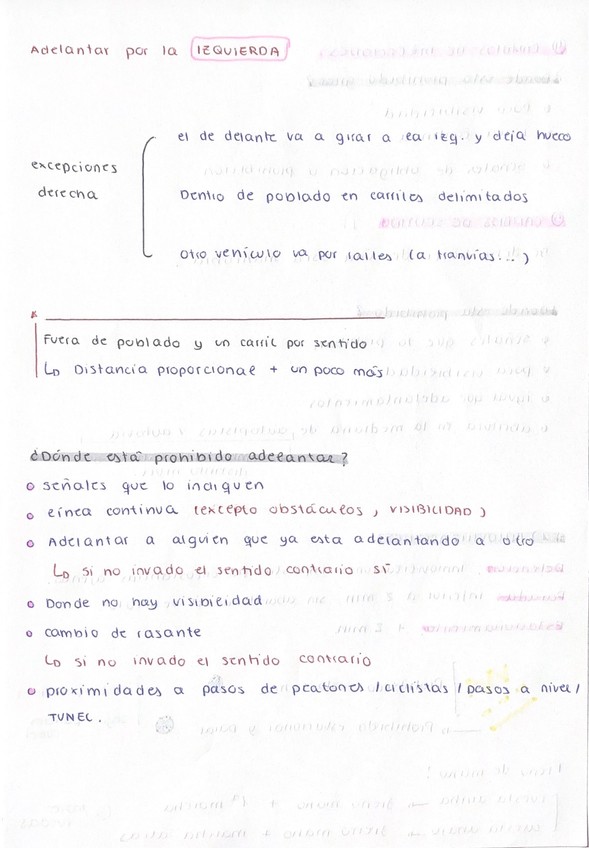 Adelantar por la IZQUIERDA
el de delante va a girar a la izq. y deja hueco
excepciones
derecha
Dentro de poblado en carriles delimitados
Otro vehículo va por railes (a tranvías...)
*
Fuera de poblado y un carril por sentido
↳ Distancia proporcional + un poco más
¿Dónde está prohibido adelantar?
o señales que lo indiquen
o línea continua (excepto obstáculos, VISIBILIDAD)
o Adelantar a alguien que ya esta adelantando a otro
↳ si no invado el sentido contrario sí
o Donde no hay visibilidad
o cambio de rasante
↳ si no invado el sentido contrario
o proximidades a pasos de peatones / ciclistas / pasos a nivel /
TUNEL.